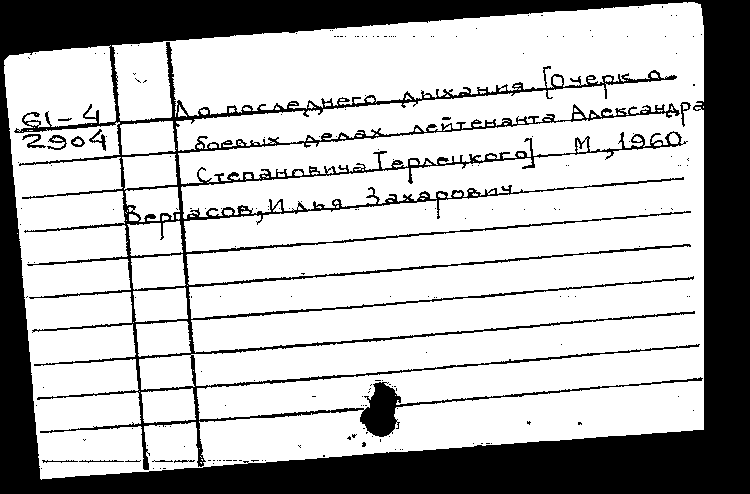 61-4
2904
До последнего дыхания. [Очерк о
боевых делах лейтенанта Александра
Степановича Терлецкого]. М., 1960
Вергасов, Илья Захарович.